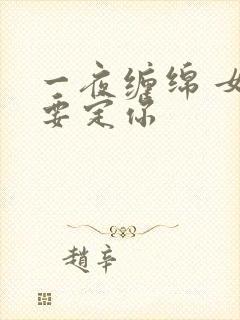 一夜缠绵 女
要定你
趙辛